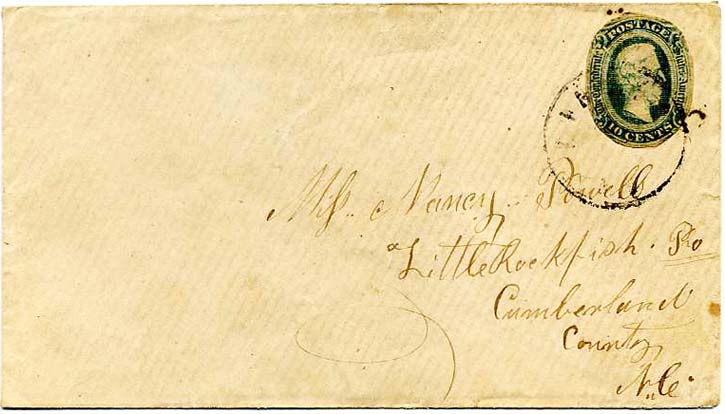 POSTAGE
10 CENTS
Miss. Nancy Powell
Little Rockfish. Po
Cumberland
County,
N.C.